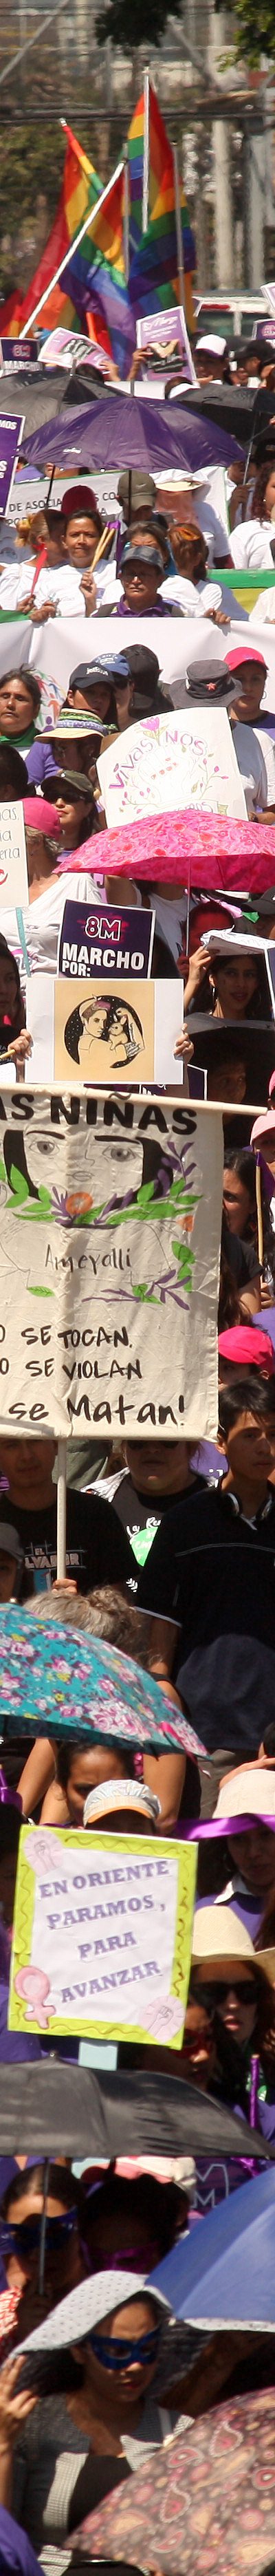 8M
MARCHO
DE ASOCIA
VIVAS NOS
8M
MARCHO
POR:
AS NIÑAS
Ameyalli
O SE TOCAN,
O SE VIOLAN
se Matan!
EN ORIENTE
PARAMOS,
PARA
AVANZAR